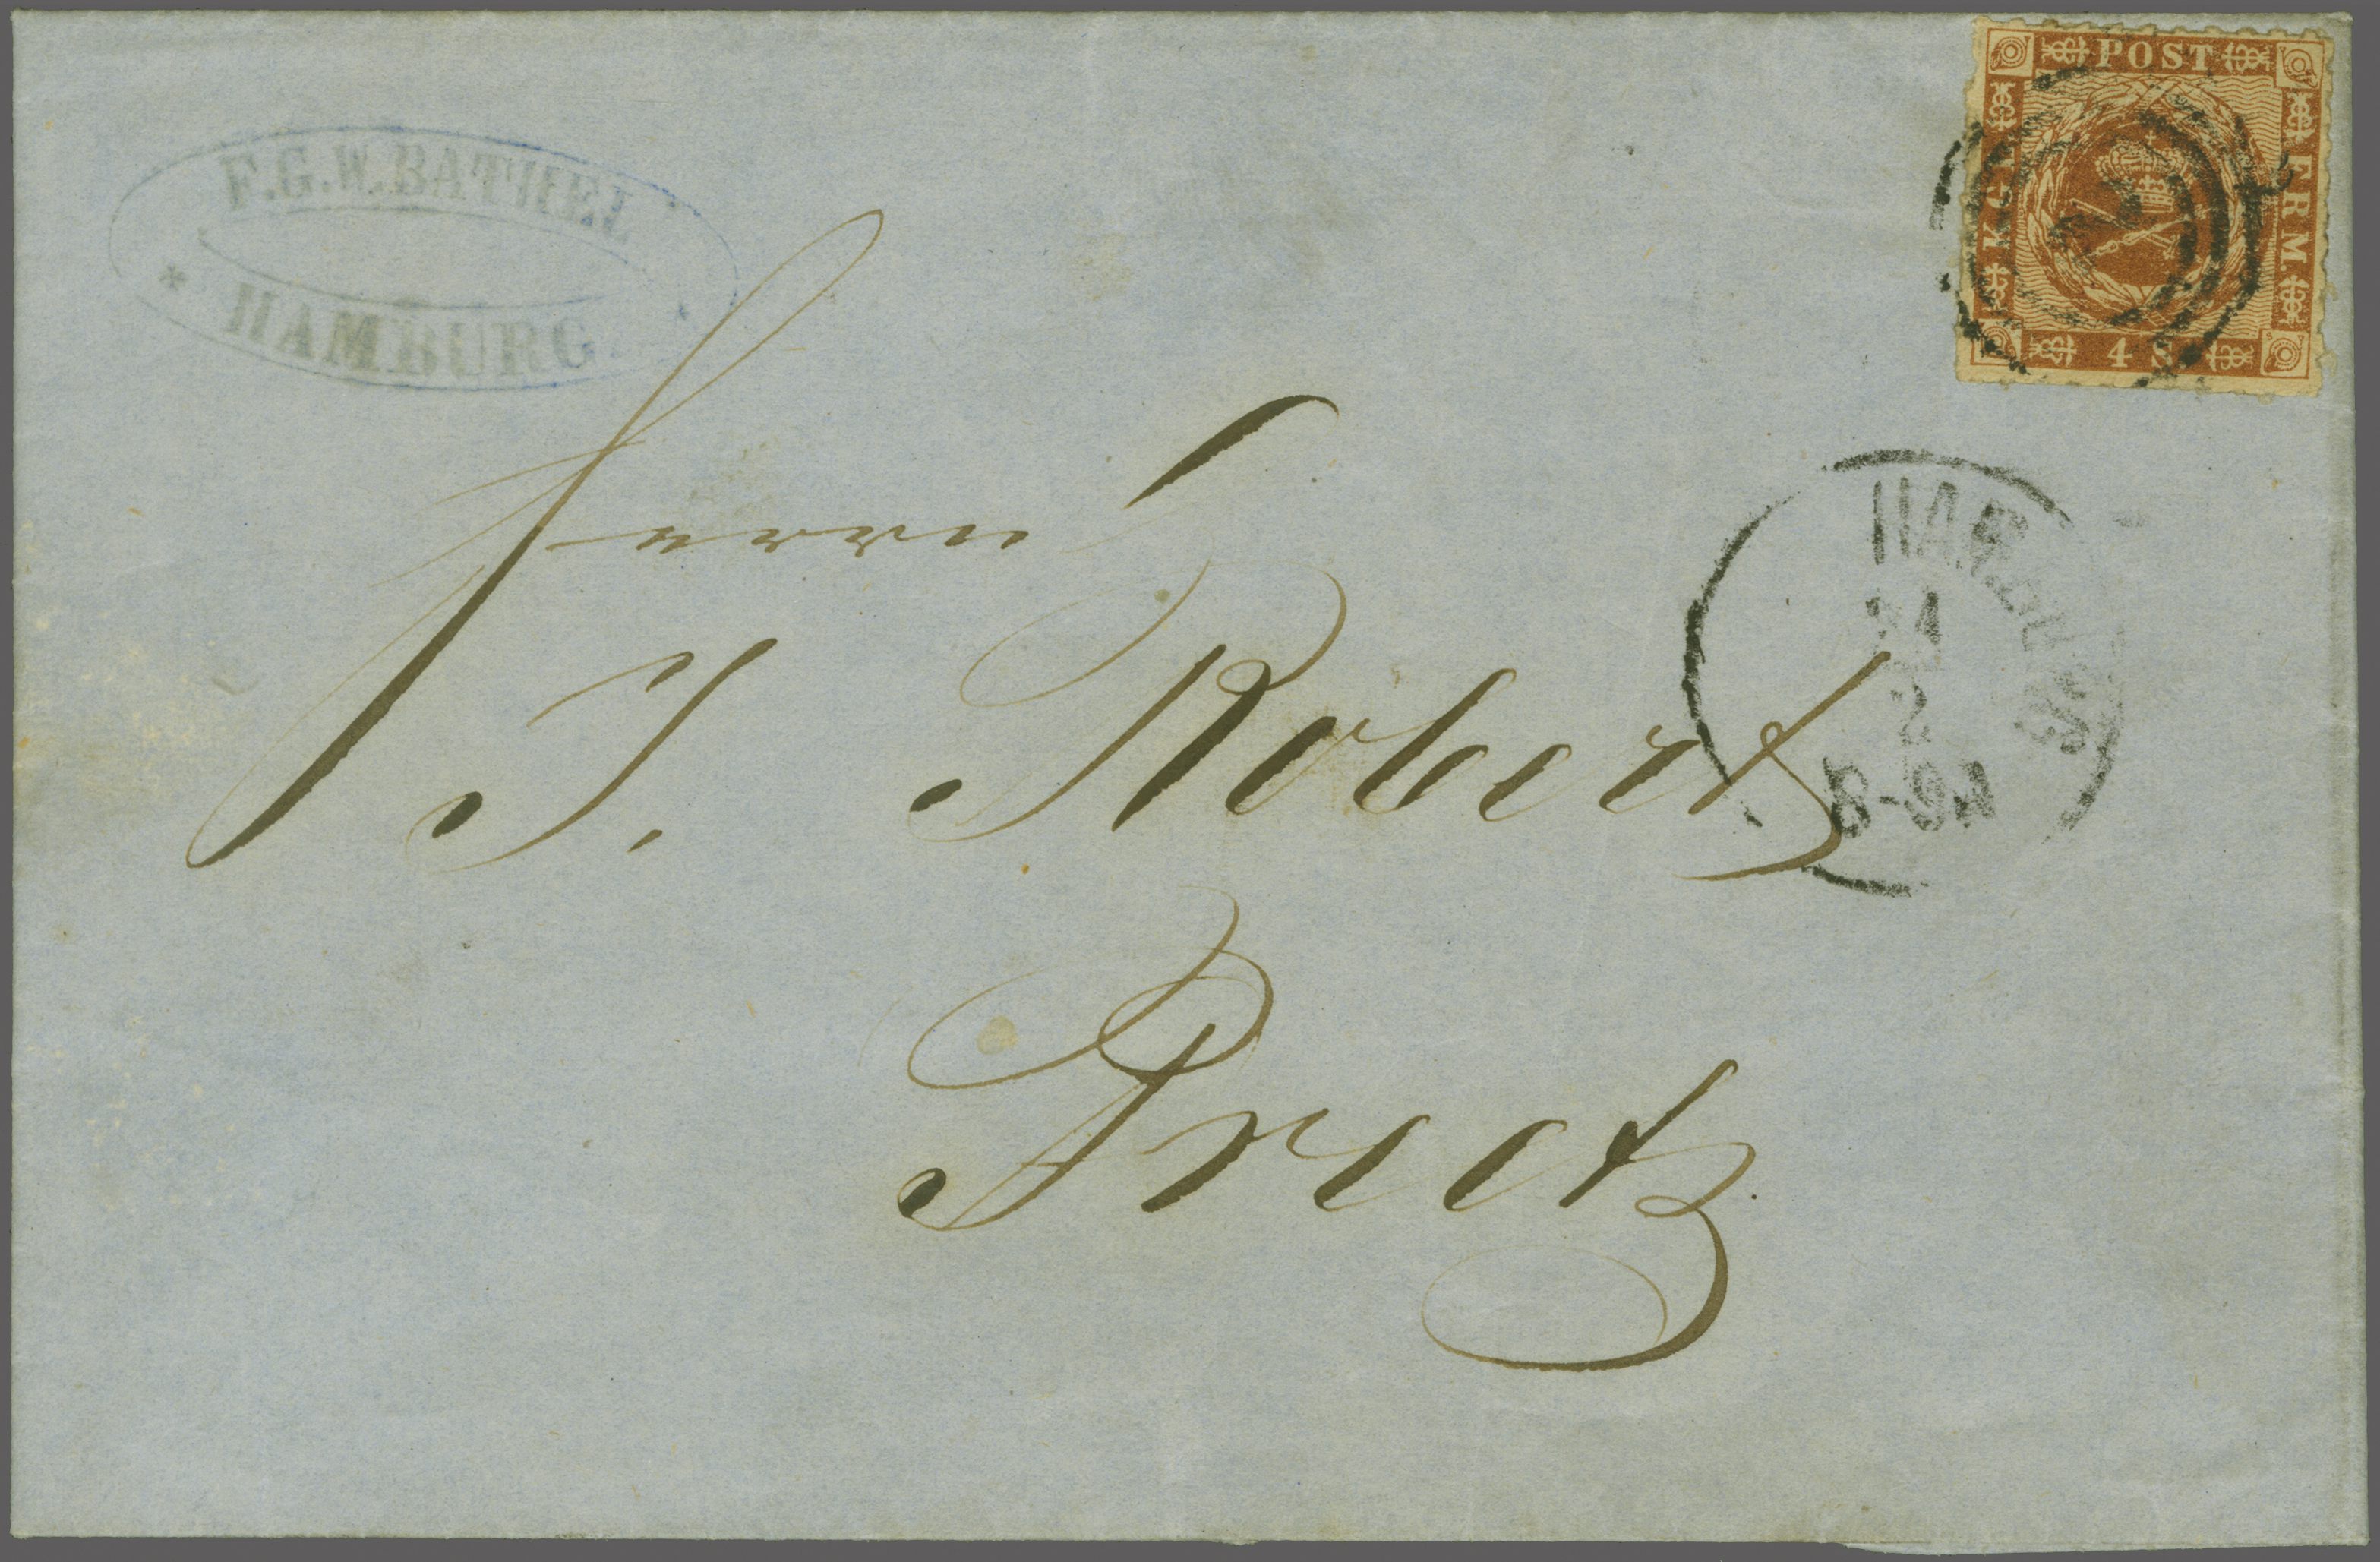 F.G.W. BATHEL
* HAMBURG
POST
KGL
FRM
4 S
2
HAMBURG
2
8-9
Herrn
J. Robert
Preetz